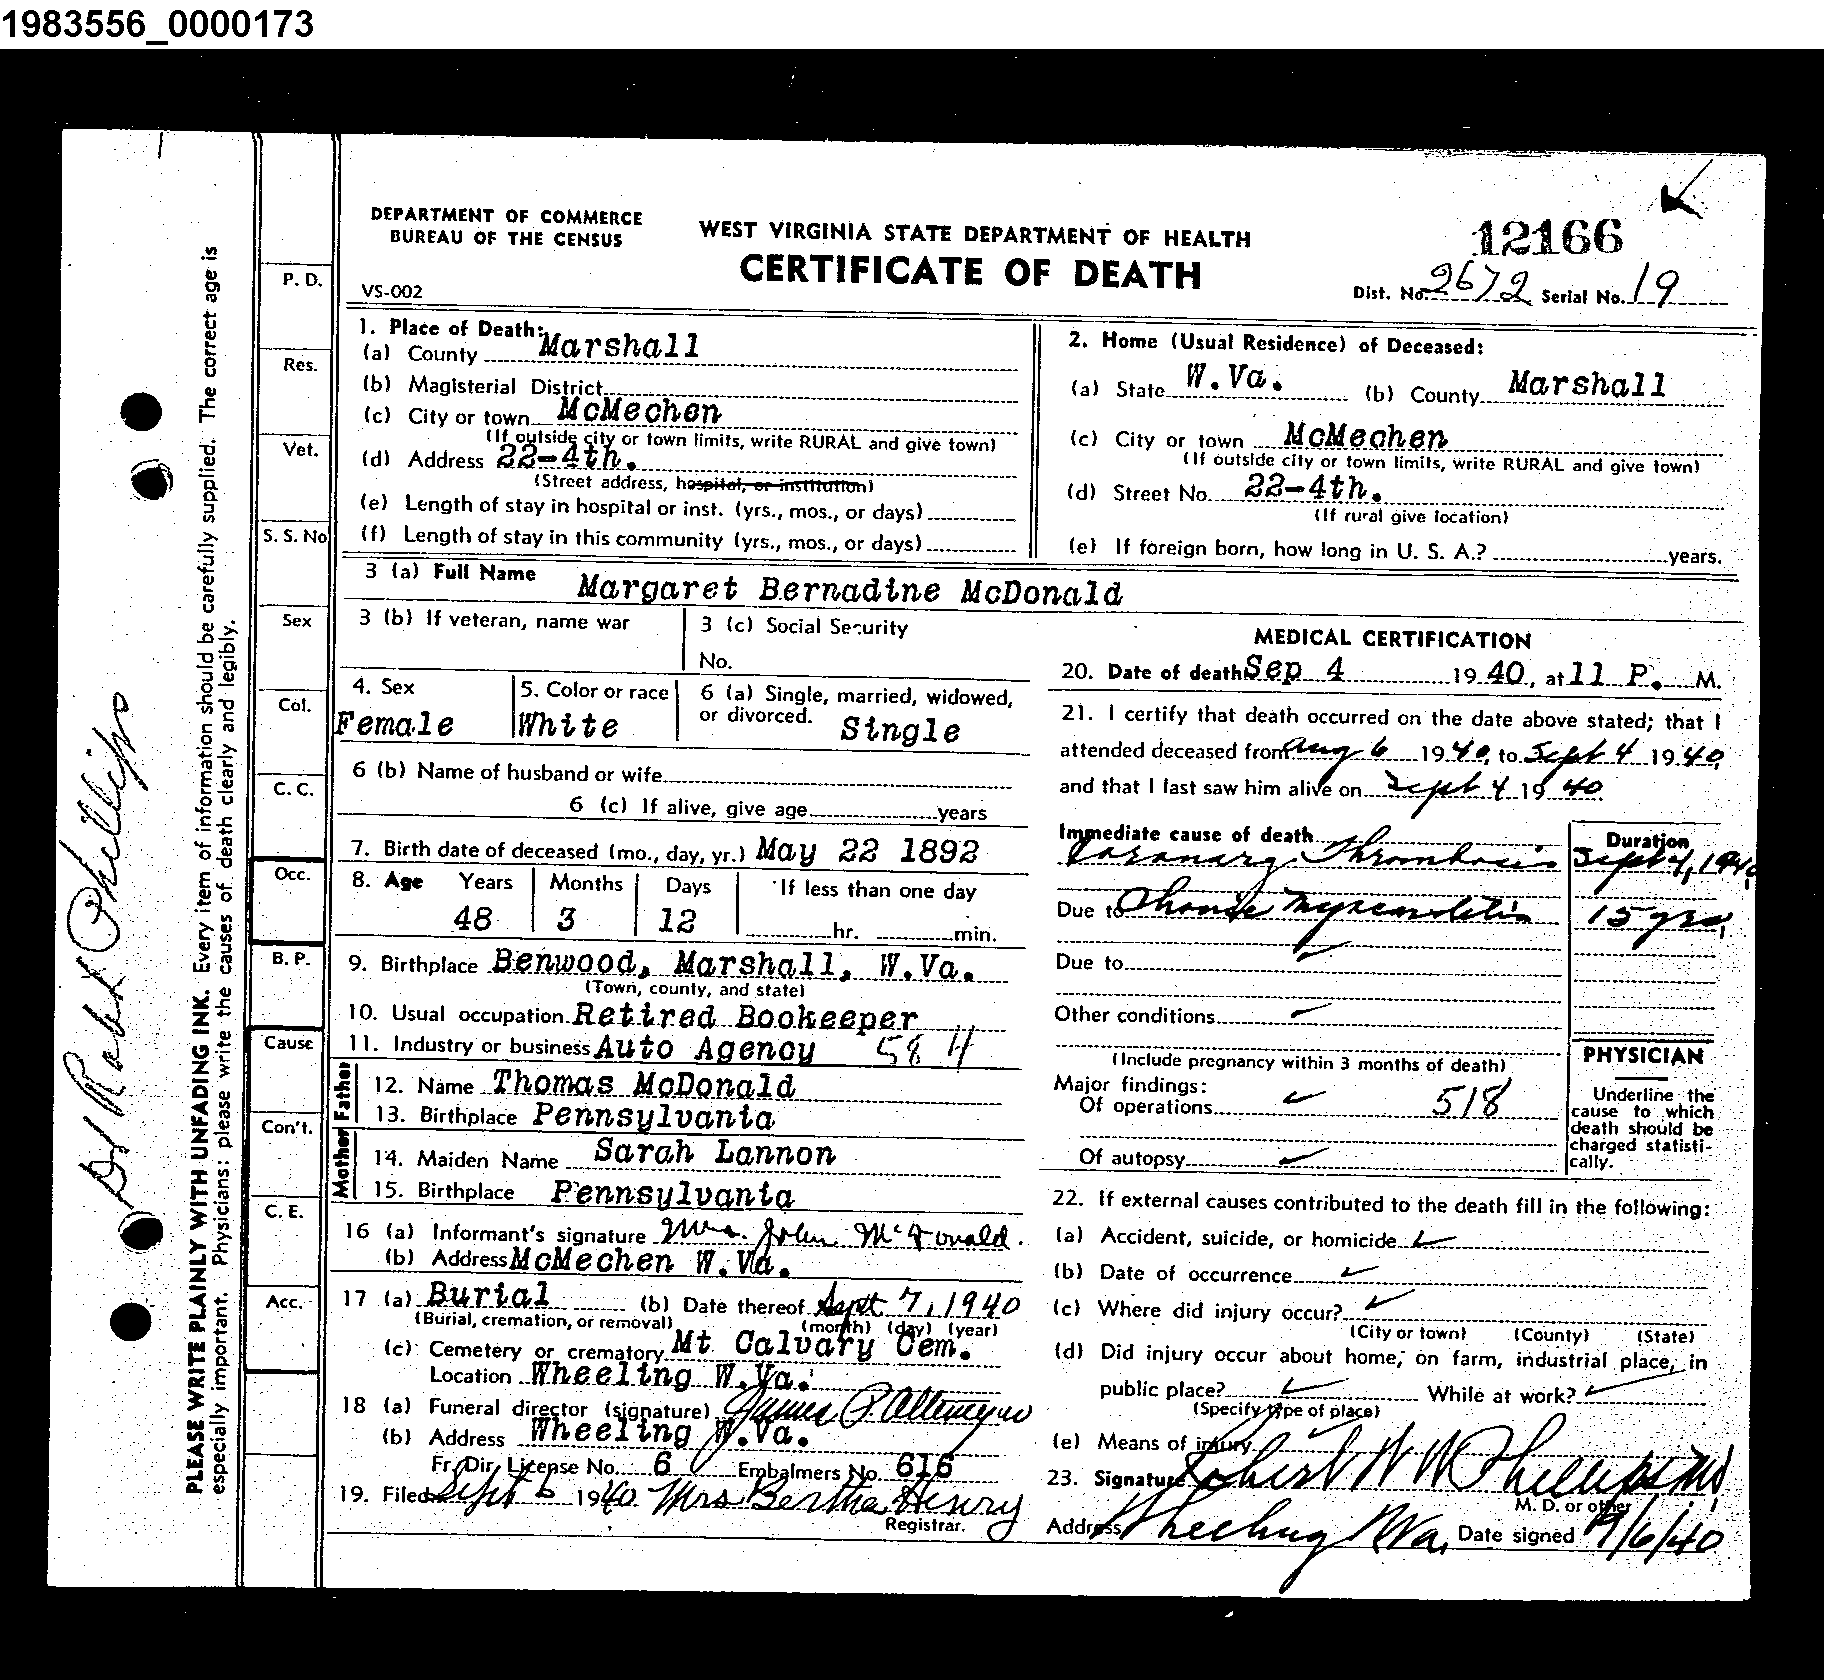 1983556_0000173
DEPARTMENT OF COMMERCE
BUREAU OF THE CENSUS
WEST VIRGINIA STATE DEPARTMENT OF HEALTH
CERTIFICATE OF DEATH
12166
VS-002
Dist. No. 2672 Serial No. 19
1. Place of Death:
(a) County Marshall
(b) Magisterial District
(c) City or town McMechen
(If outside city or town limits, write RURAL and give town)
(d) Address 22-4th.
(Street address, hospital, or institution)
(e) Length of stay in hospital or inst. (yrs., mos., or days)
(f) Length of stay in this community (yrs., mos., or days)
2. Home (Usual Residence) of Deceased:
(a) State W.Va. (b) County Marshall
(c) City or town McMechen
(If outside city or town limits, write RURAL and give town)
(d) Street No. 22-4th.
(If rural give location)
(e) If foreign born, how long in U. S. A.? years.
3 (a) Full Name Margaret Bernadine McDonald
3 (b) If veteran, name war
3 (c) Social Security
No.
4. Sex
Female
5. Color or race
White
6 (a) Single, married, widowed,
or divorced. Single
6 (b) Name of husband or wife
6 (c) If alive, give age years
7. Birth date of deceased (mo., day, yr.) May 22 1892
8. Age Years Months Days If less than one day
48 3 12 hr. min.
9. Birthplace Benwood, Marshall, W.Va.
(Town, county, and state)
10. Usual occupation Retired Bookeeper
11. Industry or business Auto Agency 58 H
Father
12. Name Thomas McDonald
13. Birthplace Pennsylvania
Mother
14. Maiden Name Sarah Lannon
15. Birthplace Pennsylvania
16 (a) Informant's signature Mrs. John McDonald.
(b) Address McMechen W.Va.
17 (a) Burial (b) Date thereof Sept 7, 1940
(Burial, cremation, or removal) (month) (day) (year)
(c) Cemetery or crematory Mt Calvary Cem.
Location Wheeling W.Va.
18 (a) Funeral director (signature) James P. Altmeyer
(b) Address Wheeling W.Va.
Fr. Dir. License No. 6 Embalmers No. 616
19. Filed Sept 6 1940 Mrs Bertha Henry
Registrar.
MEDICAL CERTIFICATION
20. Date of death Sep 4 1940, at 11 P. M.
21. I certify that death occurred on the date above stated; that I
attended deceased from Aug 6 1940, to Sept 4 1940,
and that I last saw him alive on Sept 4 1940
Immediate cause of death
Coronary Thrombosis
Duration
Sept 4, 1940
Due to Chronic 15 yrs,
Due to
Other conditions
(Include pregnancy within 3 months of death)
Major findings:
Of operations 518
Of autopsy
PHYSICIAN
Underline the
cause to which
death should be
charged statisti-
cally.
22. If external causes contributed to the death fill in the following:
(a) Accident, suicide, or homicide
(b) Date of occurrence
(c) Where did injury occur?
(City or town) (County) (State)
(d) Did injury occur about home, on farm, industrial place, in
public place? While at work?
(Specify type of place)
(e) Means of injury
23. Signature Robert W W Phillips MD
M. D. or other
Address Wheeling W Va. Date signed 9/6/40
P. D.
Res.
Vet.
S. S. No
Sex
Col.
C. C.
Occ.
B. P.
Cause
Con't.
C. E.
Acc.
PLEASE WRITE PLAINLY WITH UNFADING INK. Every item of information should be carefully supplied. The correct age is
especially important. Physicians: please write the causes of death clearly and legibly.
Dr Robt Phillips